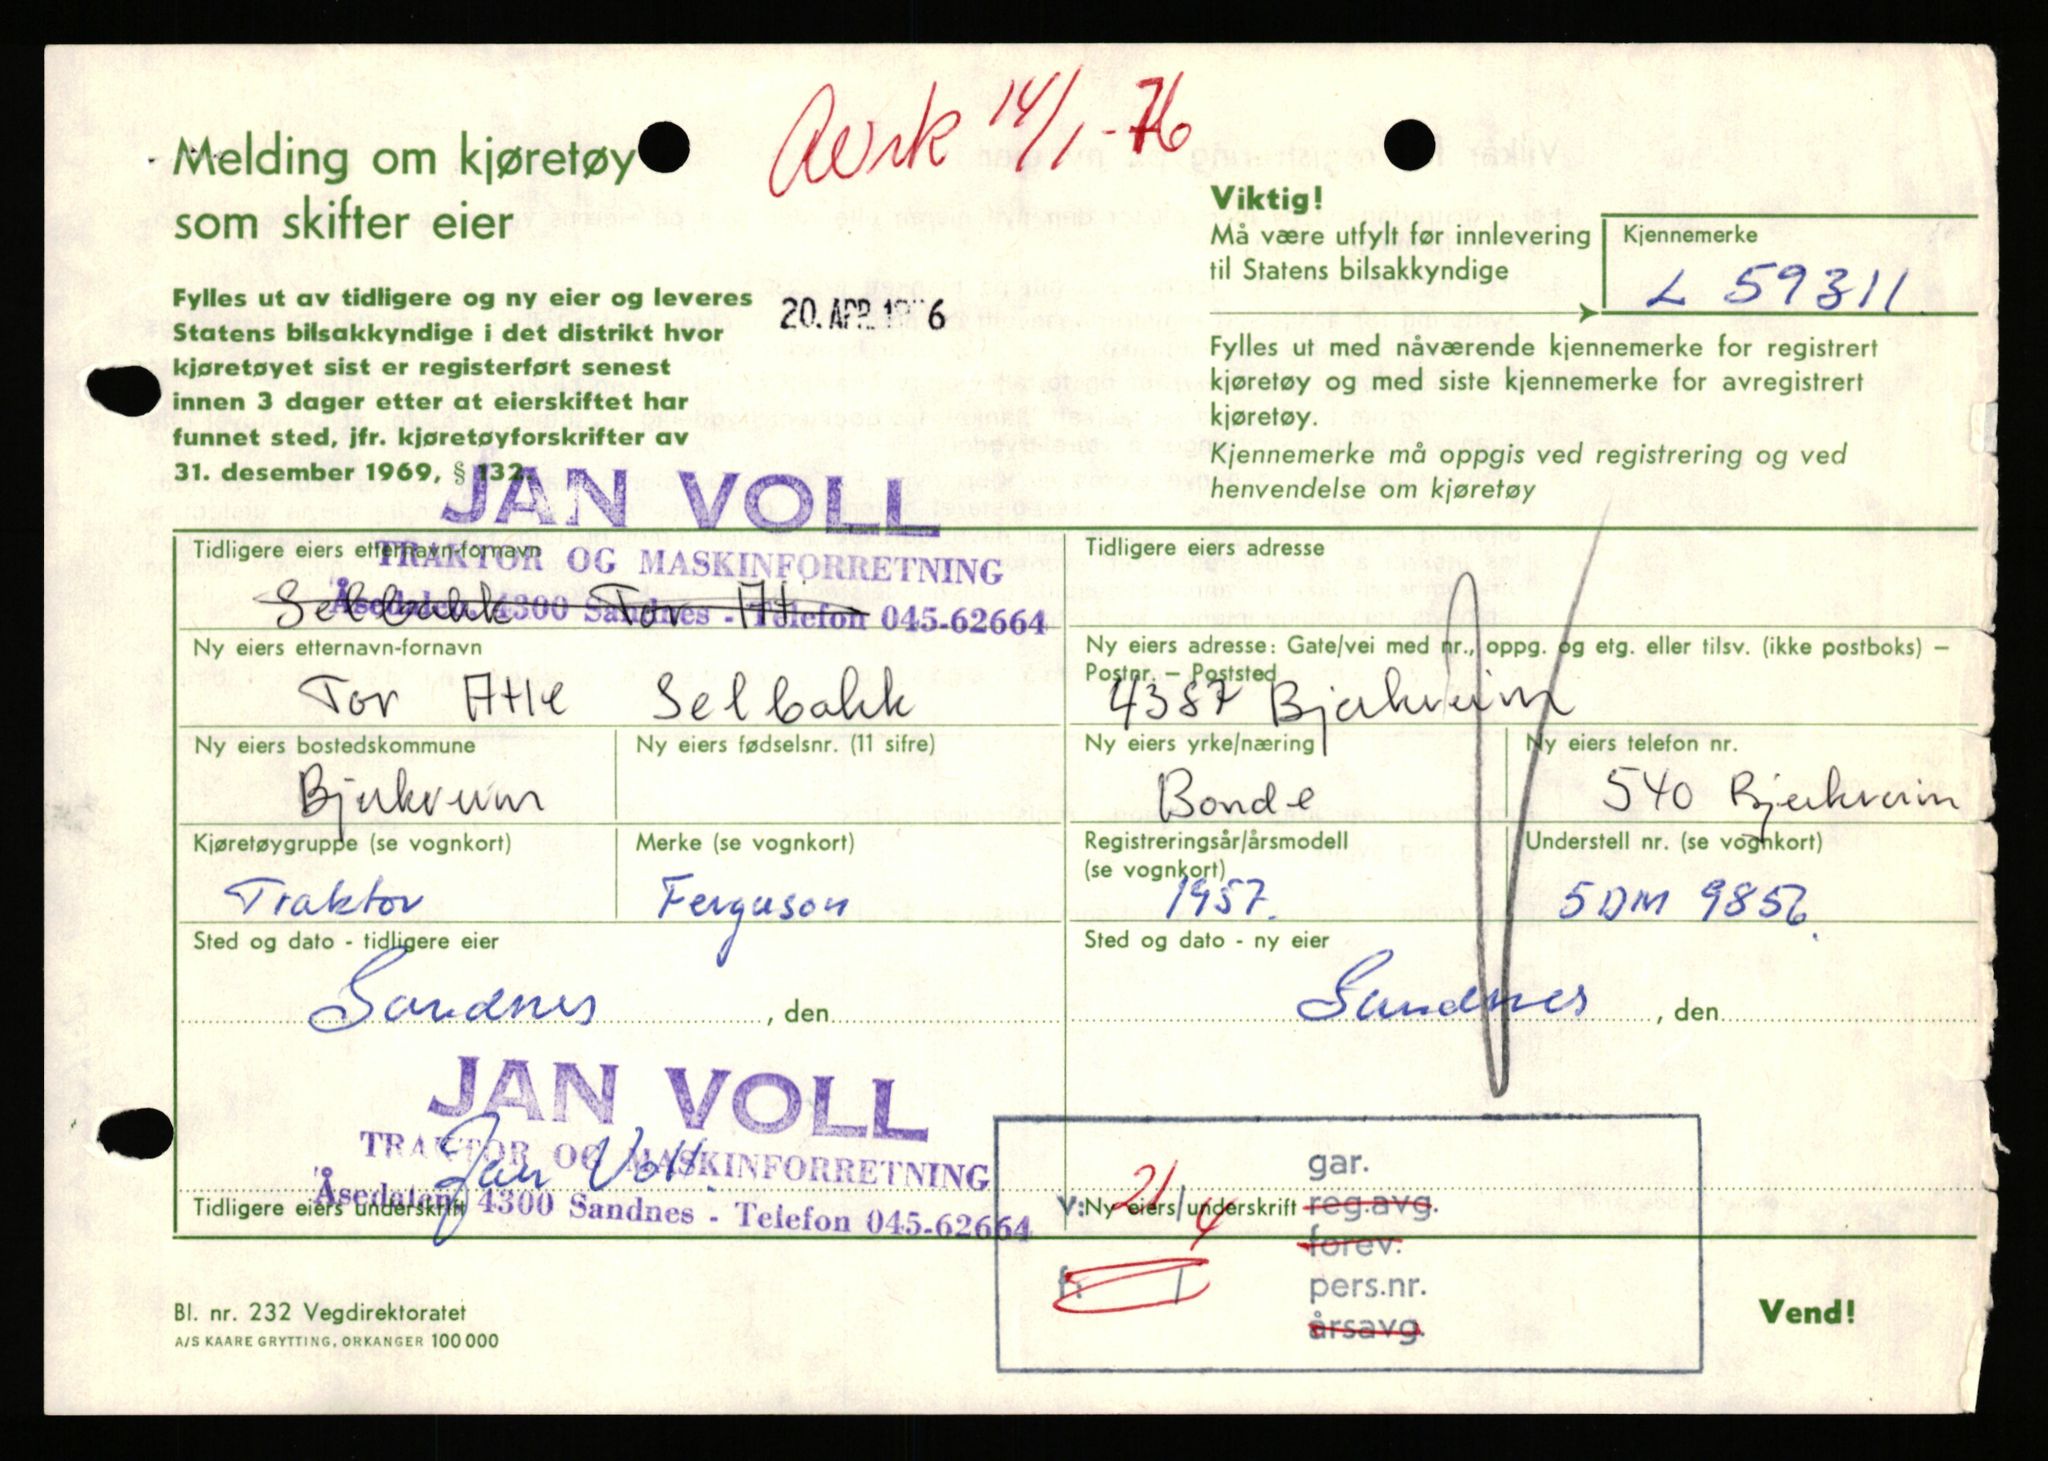 Avrk 14/1-76
Melding om kjøretøy
som skifter eier
Viktig!
Må være utfylt før innlevering
til Statens bilsakkyndige
Kjennemerke
L 59311
Fylles ut av tidligere og ny eier og leveres
Statens bilsakkyndige i det distrikt hvor
kjøretøyet sist er registerført senest
innen 3 dager etter at eierskiftet har
funnet sted, jfr. kjøretøyforskrifter av
31. desember 1969, § 132.
20. APR. 1976
Fylles ut med nåværende kjennemerke for registrert
kjøretøy og med siste kjennemerke for avregistrert
kjøretøy.
Kjennemerke må oppgis ved registrering og ved
henvendelse om kjøretøy
JAN VOLL
TRAKTOR OG MASKINFORRETNING
Åsedalen, 4300 Sandnes - Telefon 045-62664
Tidligere eiers etternavn-fornavn
Selbakk Tor Atl
Tidligere eiers adresse
Ny eiers etternavn-fornavn
Tor Atle Selbakk
Ny eiers adresse: Gate/vei med nr., oppg. og etg. eller tilsv. (ikke postboks) –
Postnr. – Poststed
4387 Bjerkreim
Ny eiers bostedskommune
Bjerkreim
Ny eiers fødselsnr. (11 sifre)
Ny eiers yrke/næring
Bonde
Ny eiers telefon nr.
540 Bjerkreim
Kjøretøygruppe (se vognkort)
Traktor
Merke (se vognkort)
Ferguson
Registreringsår/årsmodell
(se vognkort)
1957.
Understell nr. (se vognkort)
5DM 9856.
Sted og dato - tidligere eier
Sandnes , den
Sted og dato - ny eier
Sandnes , den
JAN VOLL
TRAKTOR OG MASKINFORRETNING
Åsedalen, 4300 Sandnes - Telefon 045-62664
Jan Voll.
Tidligere eiers underskrift
Ny eiers underskrift
gar.
v: 21/4 reg.avg.
forev.
f: / pers.nr.
årsavg.
Bl. nr. 232 Vegdirektoratet
A/S KAARE GRYTTING, ORKANGER 100 000
Vend!